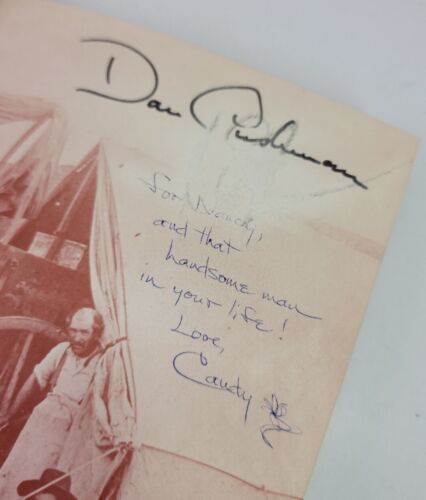 Dan Cushman
for Nancy,
and that
handsome man
in your life!
Love,
Candy